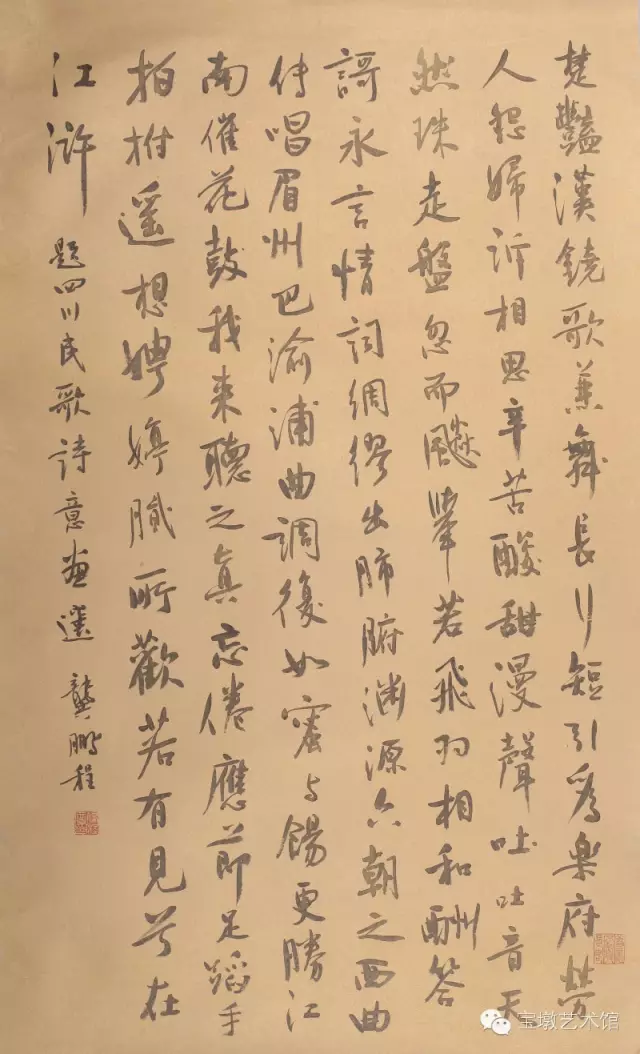 楚豔漢鐃歌兼舞長行短引為樂府勞
人怨婦訴相思辛苦酸甜漫聲吐吐音天
然珠走盤忽而飈舉若飛羽相和酬答
謌永言情詞綢繆出肺腑淵源六朝之西曲
传唱眉州巴渝浦曲調復如蜜与餳更勝江
南催花鼓我来聽之真忘倦應節足蹈手
拍拊遥想娉婷腻所歡若有見兮在
江滸
題四川民歌詩意畫選 龔鵬程
宝墩艺术馆